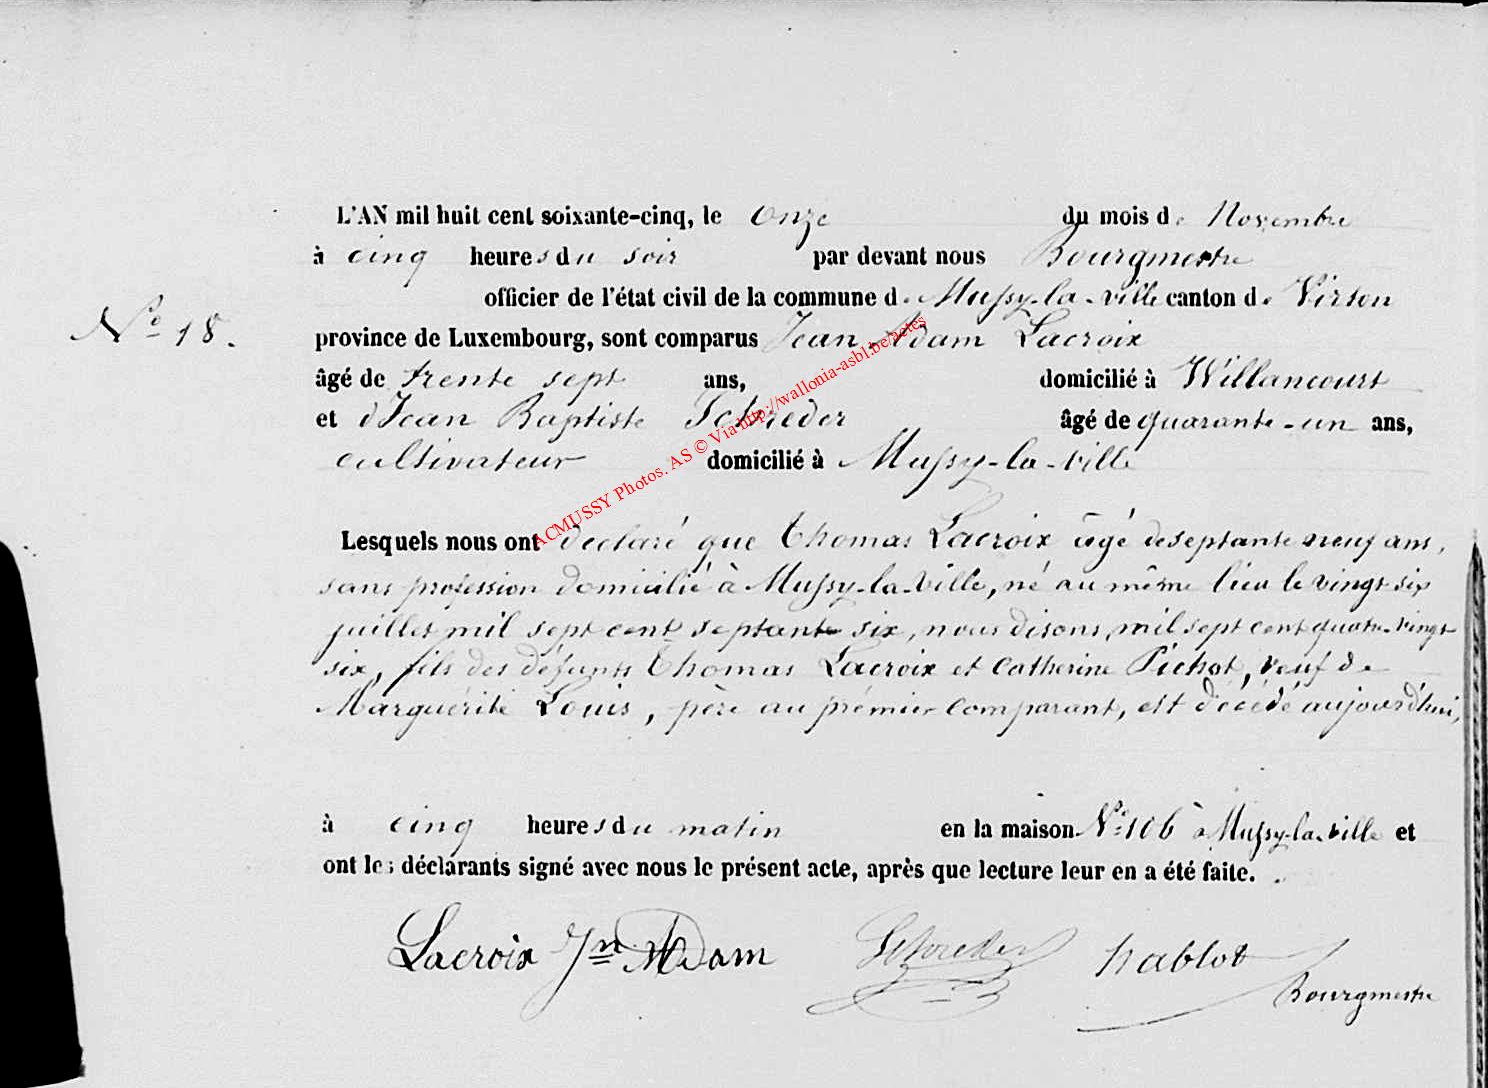 L'AN mil huit cent soixante-cinq, le onze du mois de Novembre
à cinq heures du soir par devant nous Bourgmestre
officier de l'état civil de la commune de Mussy-la-ville canton de Virton
N° 18.
province de Luxembourg, sont comparus Jean Adam Lacroix
âgé de trente sept ans, domicilié à Willancourt
et Jean Baptiste Schreder âgé de quarante-un ans,
cultivateur domicilié à Mussy-la-ville
ACMUSSY Photos. AS © Via http://wallonia-asbl.be/actes
Lesquels nous ont déclaré que Thomas Lacroix âgé de septante neuf ans,
sans profession domicilié à Mussy-la-Ville, né au même lieu le vingt six
juillet mil sept cent septante six, nous disons, mil sept cent quatre vingt
six, fils des défunts Thomas Lacroix et Catherine Pichot, veuf de
Marguérite Louis, père au prémier comparant, est décédé aujourd'hui,
à cinq heures du matin en la maison N° 106 à Mussy-la-ville et
ont les déclarants signé avec nous le présent acte, après que lecture leur en a été faite.
Lacroix Jn Adam Schreder hablot
Bourgmestre